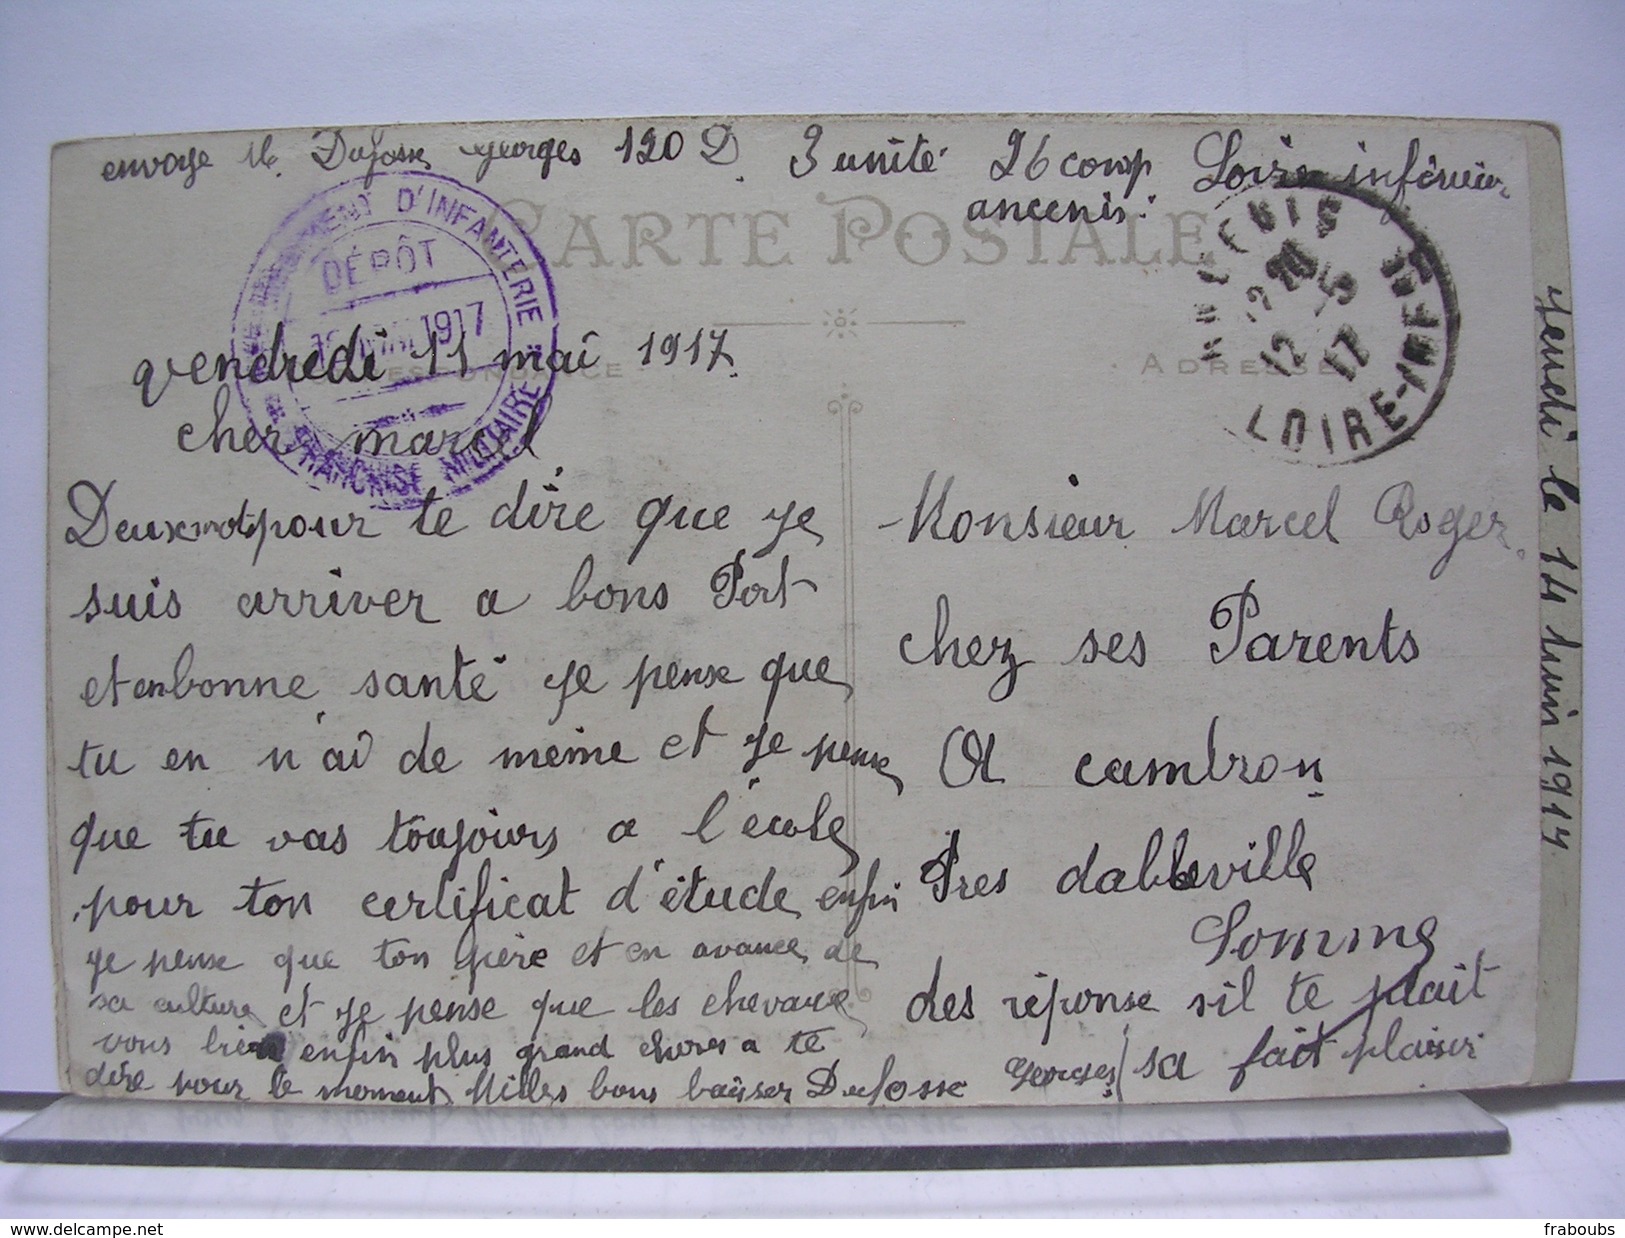 envoye M. Dufosse georges 120 D. 3 unité 26 comp Loire inférieure
ancenis.
CARTE POSTALE
D'INFANTERIE
DÉPÔT
1917
FRANCHISE MILITAIRE
ANCENIS
12 - 5
17
LOIRE-INFRE
CORRESPONDANCE
ADRESSE
vendredi 11 mai 1917.
cher marcel
Deux mots pour te dire que je
suis arriver a bons Port
et en bonne santé je pense que
tu en n'ai de meme et je pense
que tu vas toujours a l'école
pour ton certificat d'étude enfin
je pense que ton père et en avance de
sa culture et je pense que les chevaux
vous bien enfin plus grand choses a te
dire pour le moment Milles bons baiser Dufosse Georges
Monsieur Marcel Roger.
chez ses Parents
A cambron
Pres dabbeville
Somme
des réponse s'il te plait
sa fait plaisir
Jeudi le 14 Juin 1917
www.delcampe.net
fraboubs